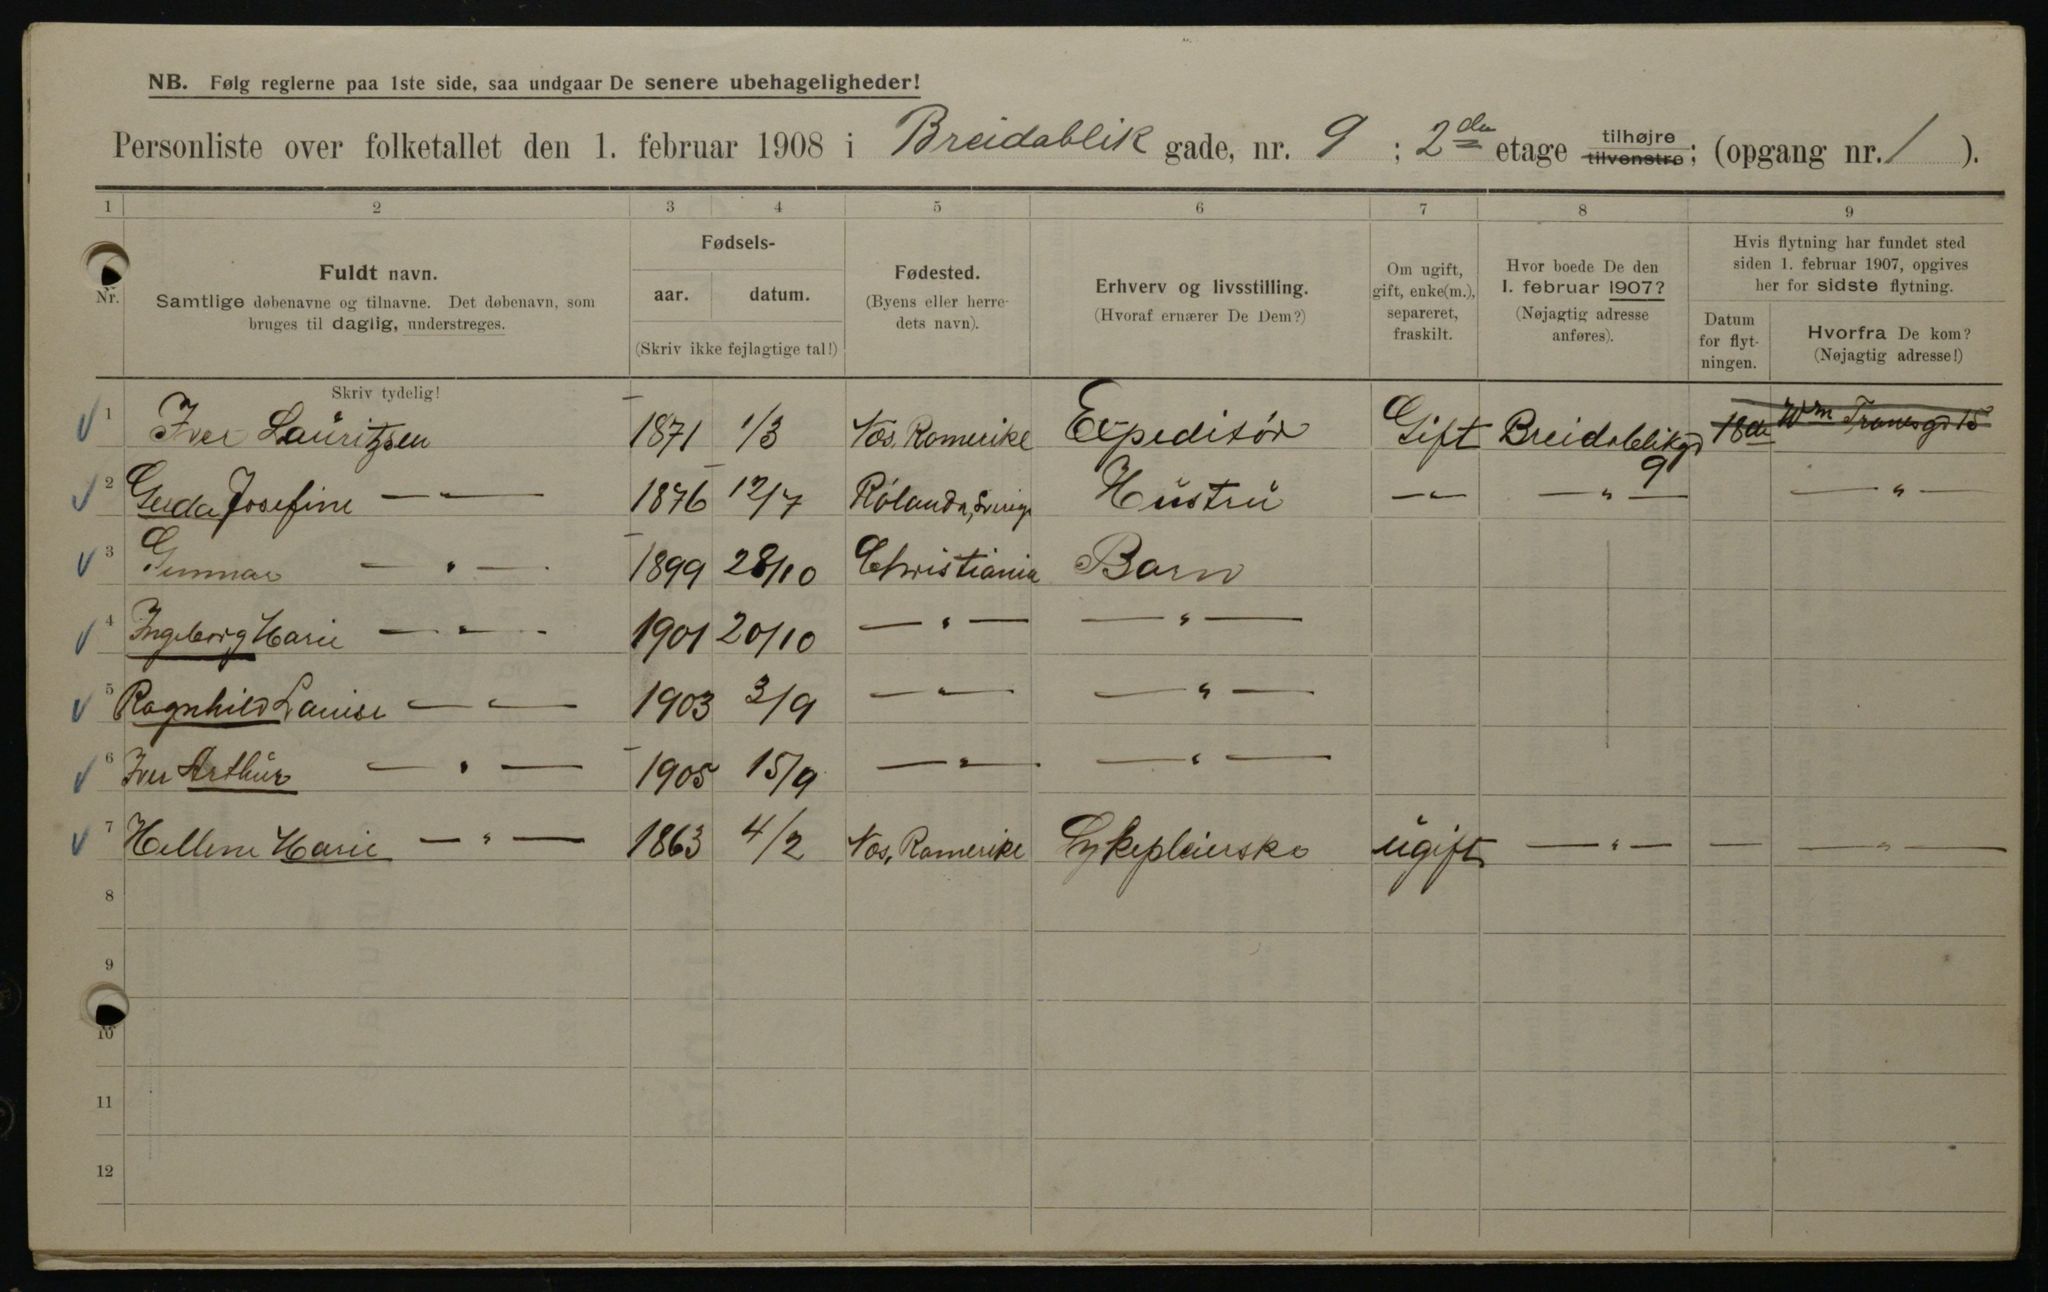 NB. Følg reglerne paa 1ste side, saa undgaar De senere ubehageligheder!
Personliste over folketallet den 1. februar 1908 i Breidablik gade, nr. 9; 2den etage tilhøjre tilvenstre; (opgang nr. 1).
1 2 3 4 5 6 7 8 9
Nr. Fuldt navn. Samtlige døbenavne og tilnavne. Det døbenavn, som bruges til daglig, understreges.
Fødsels- aar. datum. (Skriv ikke fejlagtige tal!)
Fødested. (Byens eller herredets navn).
Erhverv og livsstilling. (Hvoraf ernærer De Dem?)
Om ugift, gift, enke(m.), separeret, fraskilt.
Hvor boede De den 1. februar 1907? (Nøjagtig adresse anføres).
Hvis flytning har fundet sted siden 1. februar 1907, opgives her for sidste flytning.
Datum for flytningen.
Hvorfra De kom? (Nøjagtig adresse!)
Skriv tydelig!
1 Iver Lauritzsen 1871 1/3 Næs, Romerike Expeditør Gift Breidablikgd 9 Wm Tranesgd 15
2 Gerda Josefine — " — 1876 12/7 Rølanda, Sverige Hustru — " — — " — — " —
3 Gunnar — " — 1899 28/10 Christiania Barn
4 Ingeborg Marie — " — 1901 20/10 — " — — " —
5 Ragnhild Louise — " — 1903 3/9 — " — — " —
6 Iver Arthur — " — 1905 15/9 — " — — " —
7 Hellene Marie — " — 1863 4/2 Næs, Romerike Sykepleierske ugift — " — — — " —
8
9
10
11
12